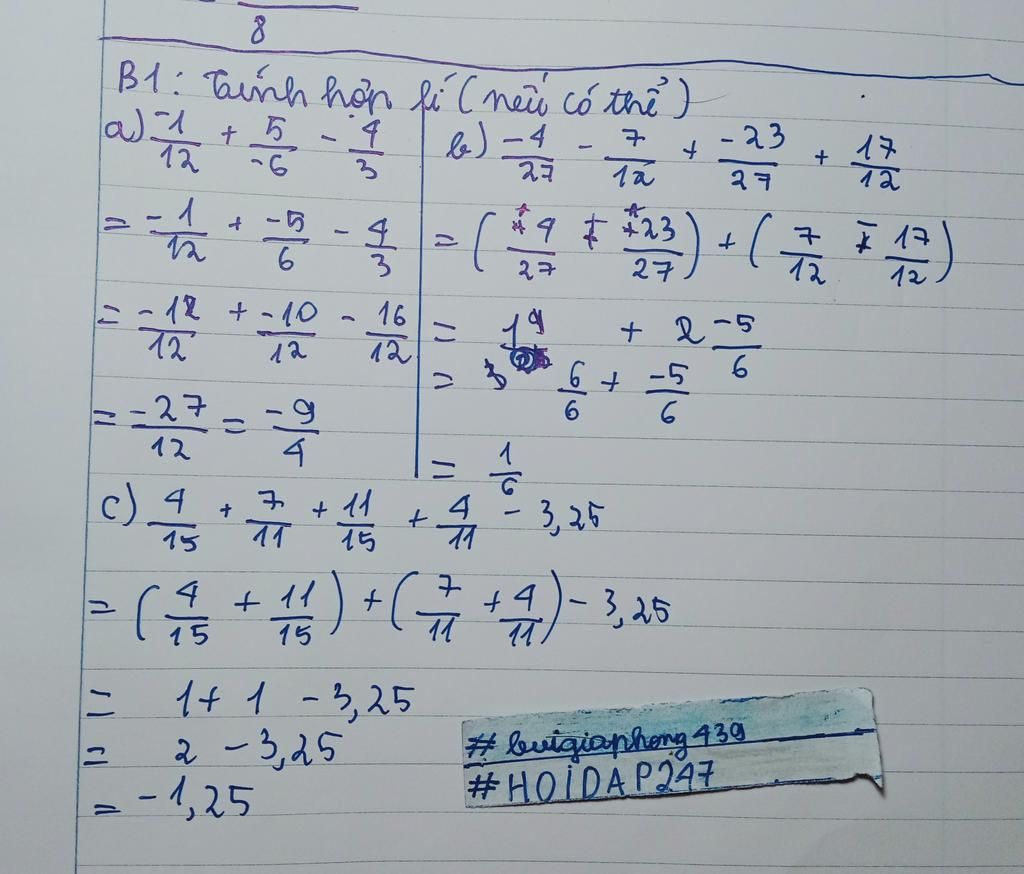 8
B1: Tính hợp lí (nếu có thể)
a) -1/12 + 5/-6 - 4/3
= -1/12 + -5/6 - 4/3
= -1/12 + -10/12 - 16/12
= -27/12 = -9/4
b) -4/27 - 7/12 + -23/27 + 17/12
= (4/27 + 23/27) + (7/12 - 17/12)
= 1 + -5/6
= 6/6 + -5/6
= 1/6
c) 4/15 + 7/11 + 11/15 + 4/11 - 3,25
= (4/15 + 11/15) + (7/11 + 4/11) - 3,25
= 1 + 1 - 3,25
= 2 - 3,25
= -1,25
# buigiaphong439
# HOIDAP247